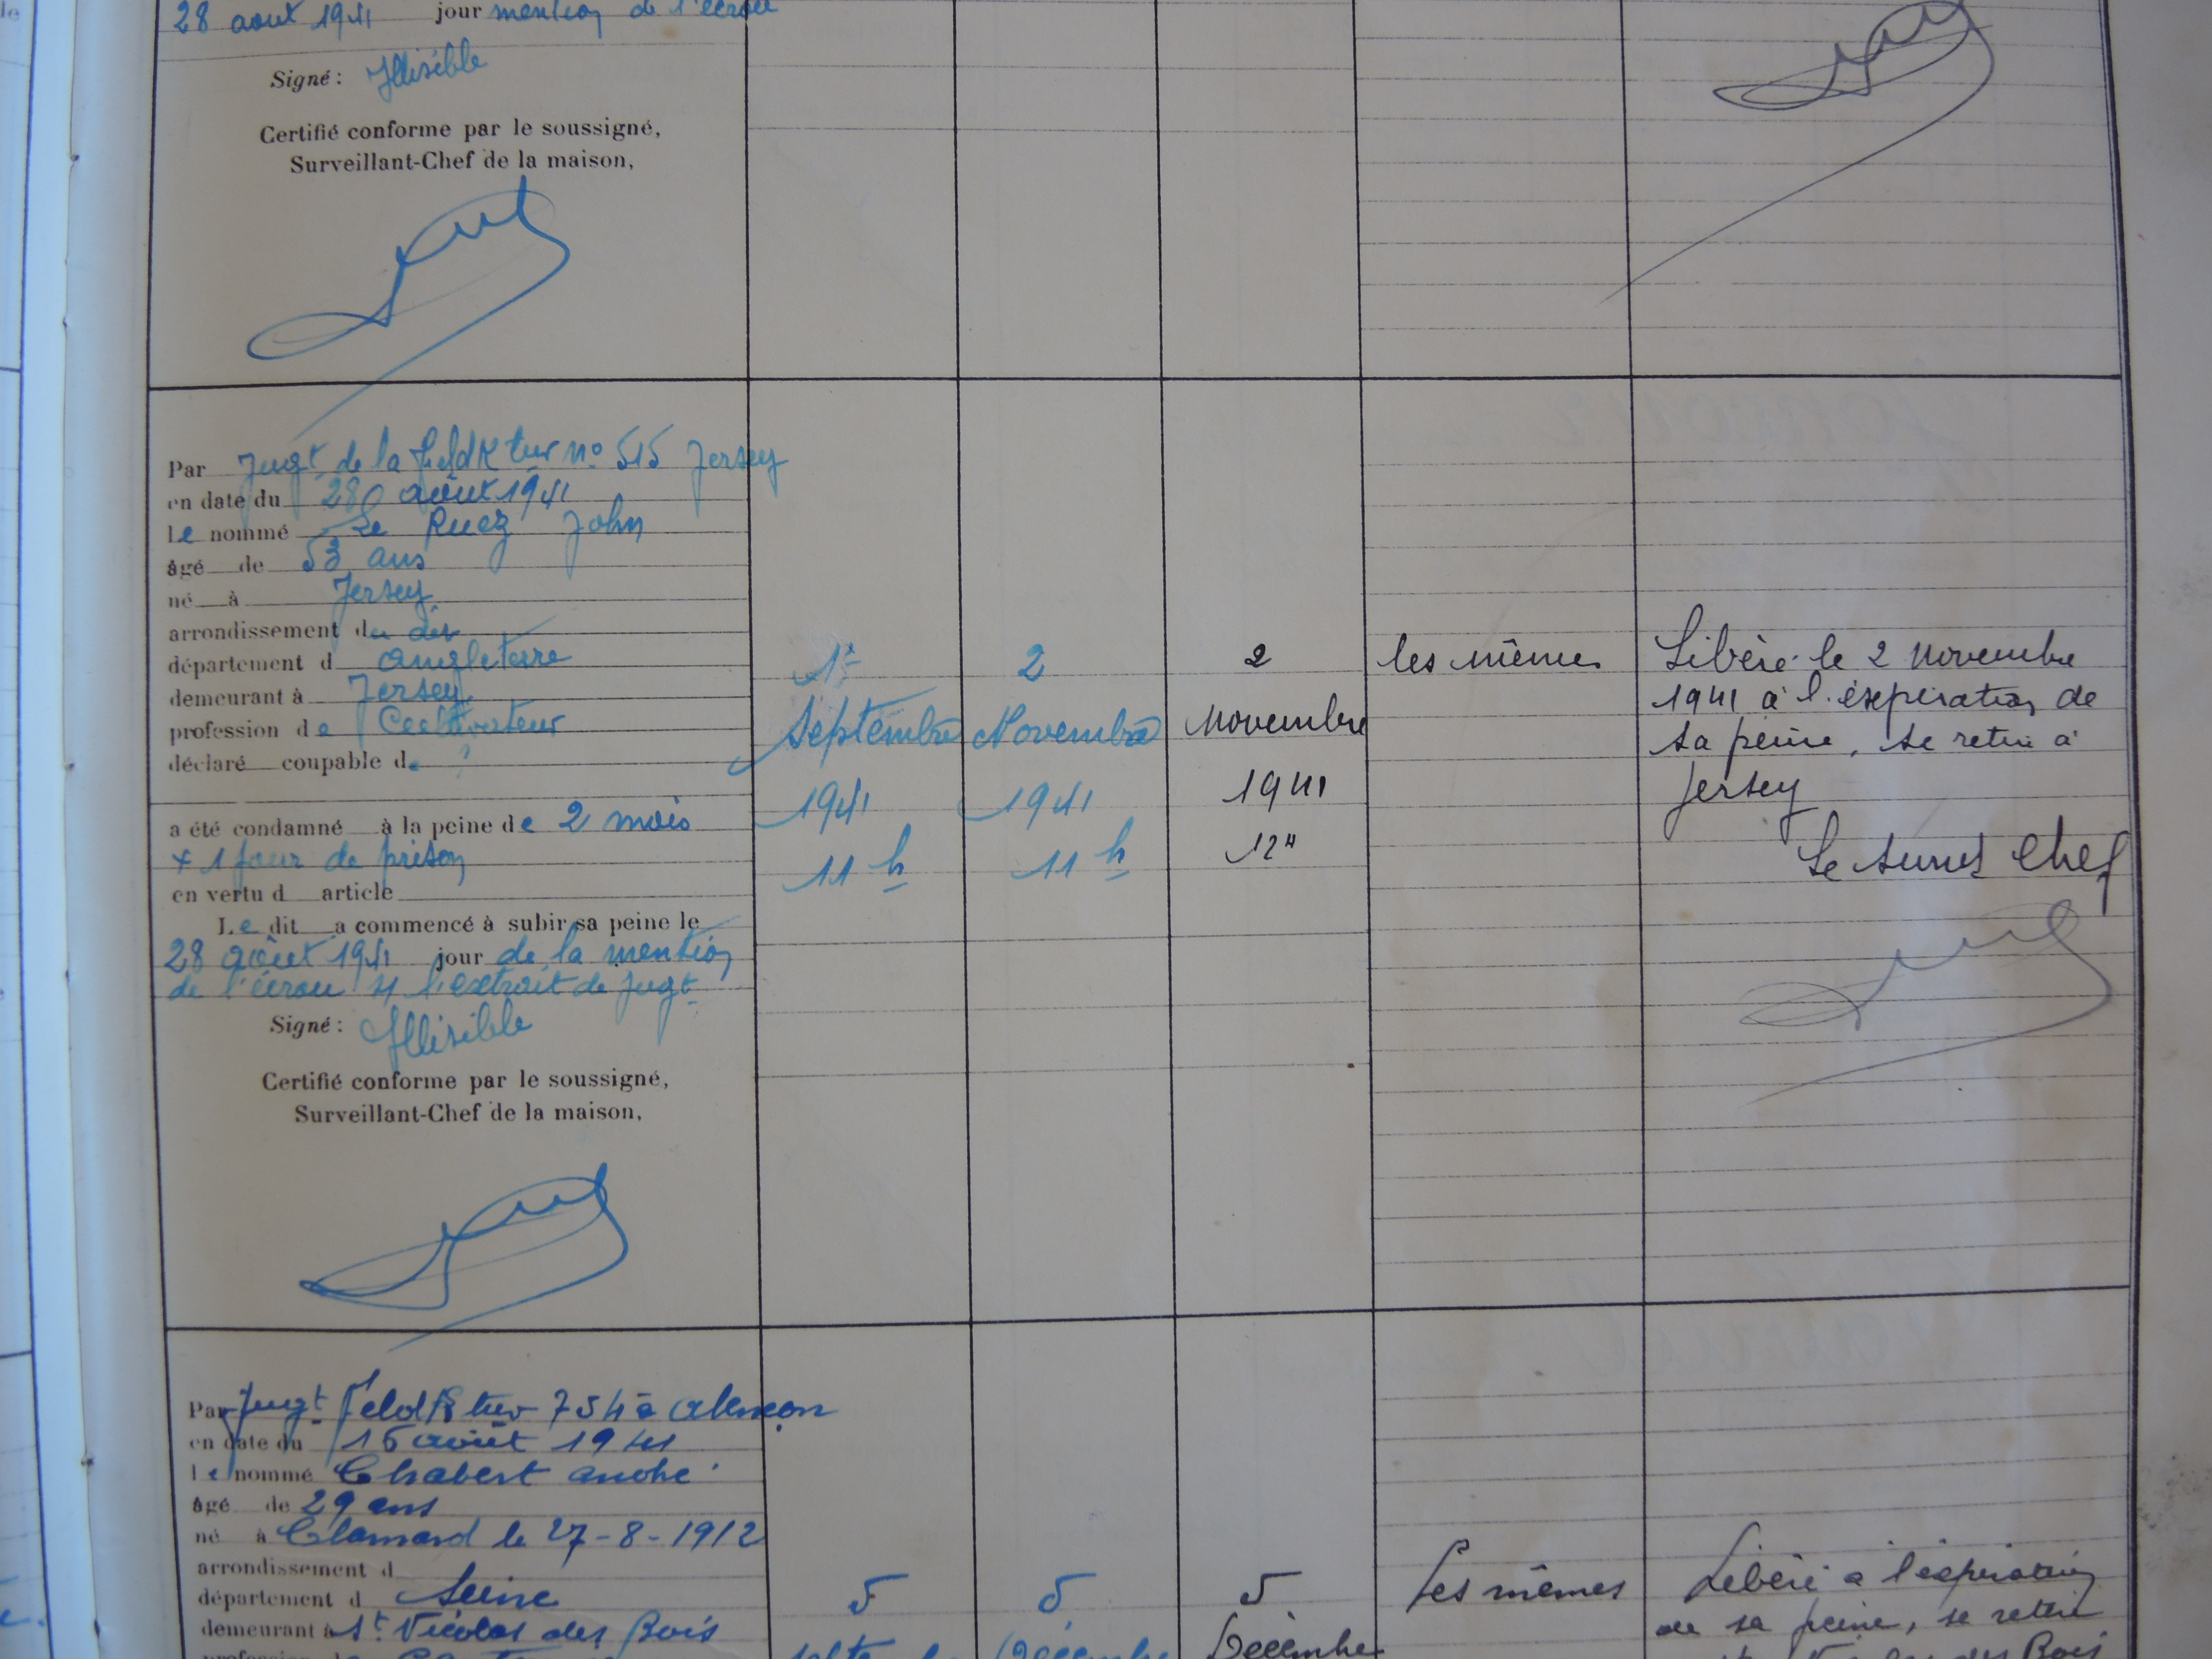 28 aout 1941 jour mention de l'écrou
Signé : Illisible
Certifié conforme par le soussigné,
Surveillant-Chef de la maison,
Par Jugt de la FeldKtur no 515 Jersey
en date du 28 août 1941
Le nommé Le Ruez John
âgé de 53 ans
né à Jersey
arrondissement du dit
département d angleterre
demeurant à Jersey
profession de Cultivateur
déclaré coupable de ?
a été condamné à la peine de 2 mois
+ 1 jour de prison
en vertu d article
Le dit a commencé à subir sa peine le
28 août 1941 jour de la mention
de l'écrou s/ l'extrait de Jugt
Signé : Illisible
Certifié conforme par le soussigné,
Surveillant-Chef de la maison,
1er
Septembre
1941
11 h
2
Novembre
1941
11 h
2
Novembre
1941
12h
les mêmes
Libéré le 2 Novembre
1941 à l'éxpiration de
sa peine, se retire à
Jersey
Le Survt Chef
Par Jugt FeldKtur 754 à Alençon
en date du 16 août 1941
Le nommé Chabert André
âgé de 29 ans
né à Clamard le 27-8-1912
arrondissement d
département d Seine
demeurant à St Nicolas des Bois
5
5
Décembre
5
Décembre
Les mêmes
Libéré à l'éxpiration
de sa peine, se retire
des Bois